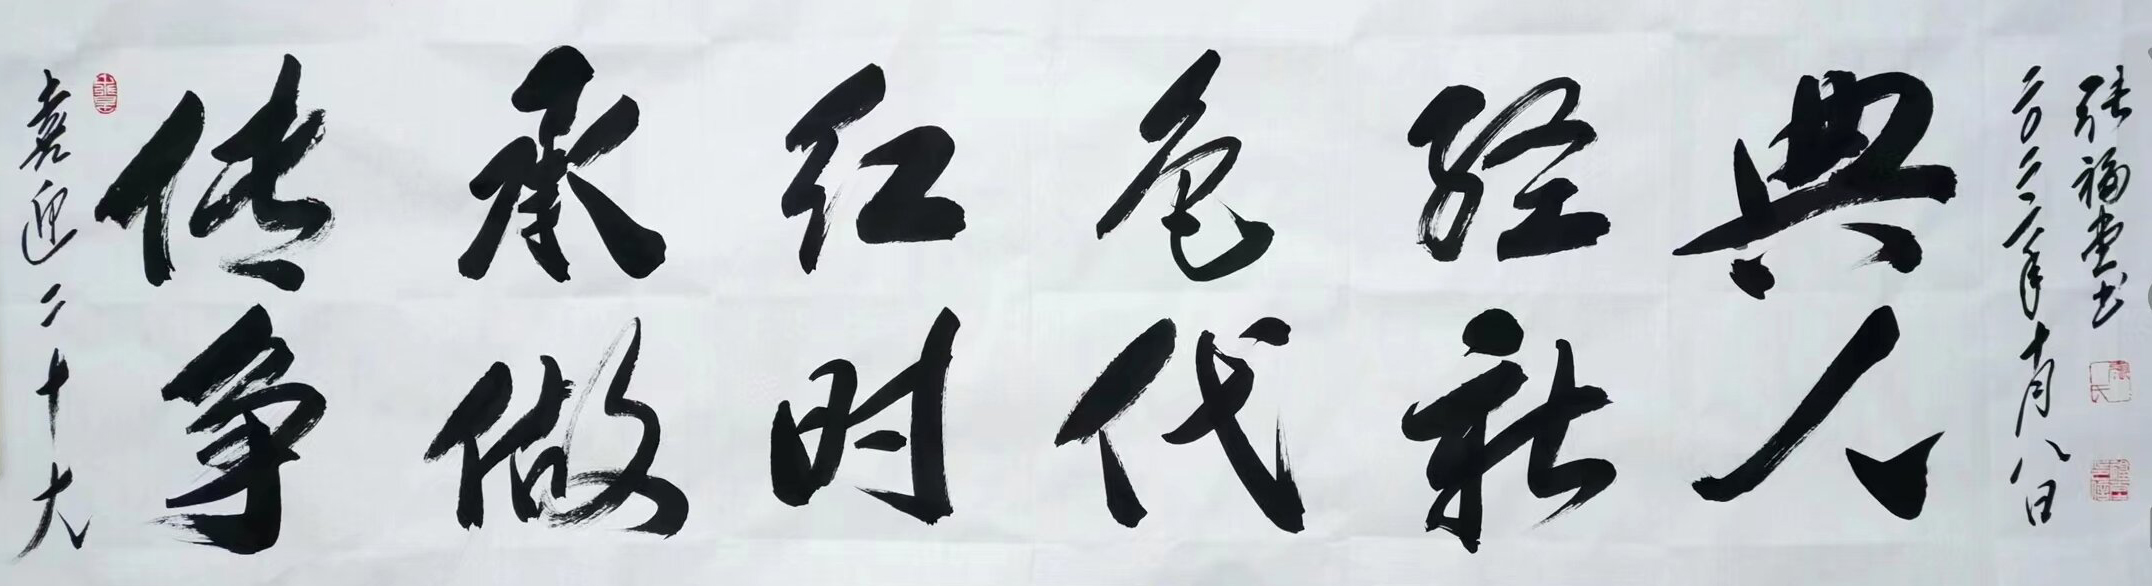 喜迎二十大
传承红色经典
争做时代新人
二〇二二年十月八日
张福堂书